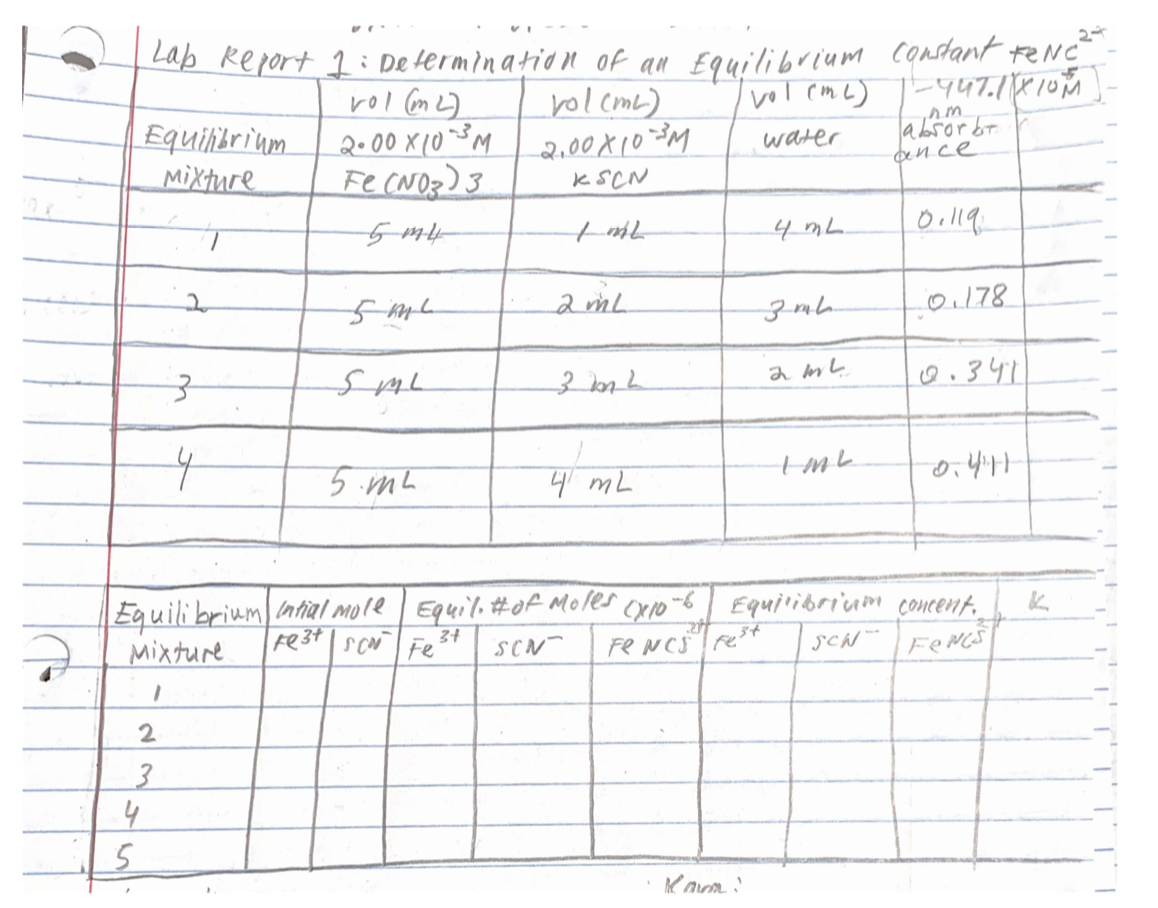 Lab Report 1: Determination of an Equilibrium Constant FeNC²⁺
Equilibrium Mixture | vol (mL) 2.00 x10⁻³M Fe(NO₃)3 | vol (mL) 2.00 x10⁻³M KSCN | vol (mL) water | -447.1 nm absorbance | (x10⁻⁵M)
1 | 5 mL | 1 mL | 4 mL | 0.119
2 | 5 mL | 2 mL | 3 mL | 0.178
3 | 5 mL | 3 mL | 2 mL | 0.341
4 | 5 mL | 4 mL | 1 mL | 0.411
Equilibrium Mixture | Intial mole | Equil. # of Moles (x10⁻⁶ | Equilibrium concent. | K
Fe³⁺ | SCN⁻ | Fe³⁺ | SCN⁻ | FeNCS²⁺ | Fe³⁺ | SCN⁻ | FeNCS²⁺
1
2
3
4
5